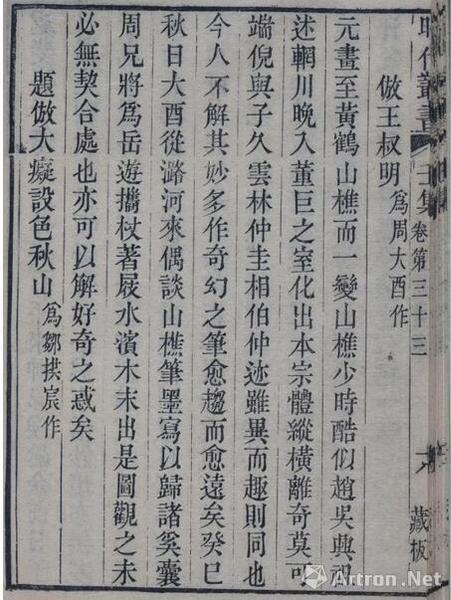 昭代叢書
壬集卷第三十三
六
藏板
倣王叔明爲周大酉作
元畫至黃鶴山樵而一變山樵少時酷似趙吳興祖
述輞川晚入董巨之室化出本宗體縱橫離奇莫可
端倪與子久雲林仲圭相伯仲迹雖異而趣則同也
今人不解其妙多作奇幻之筆愈趨而愈遠矣癸巳
秋日大酉從潞河來偶談山樵筆墨寫以歸諸奚囊
周兄將爲岳遊攜杖著屐水濱木末出是圖觀之未
必無契合處也亦可以解好奇之惑矣
題倣大癡設色秋山爲鄒拱宸作
Artron.Net